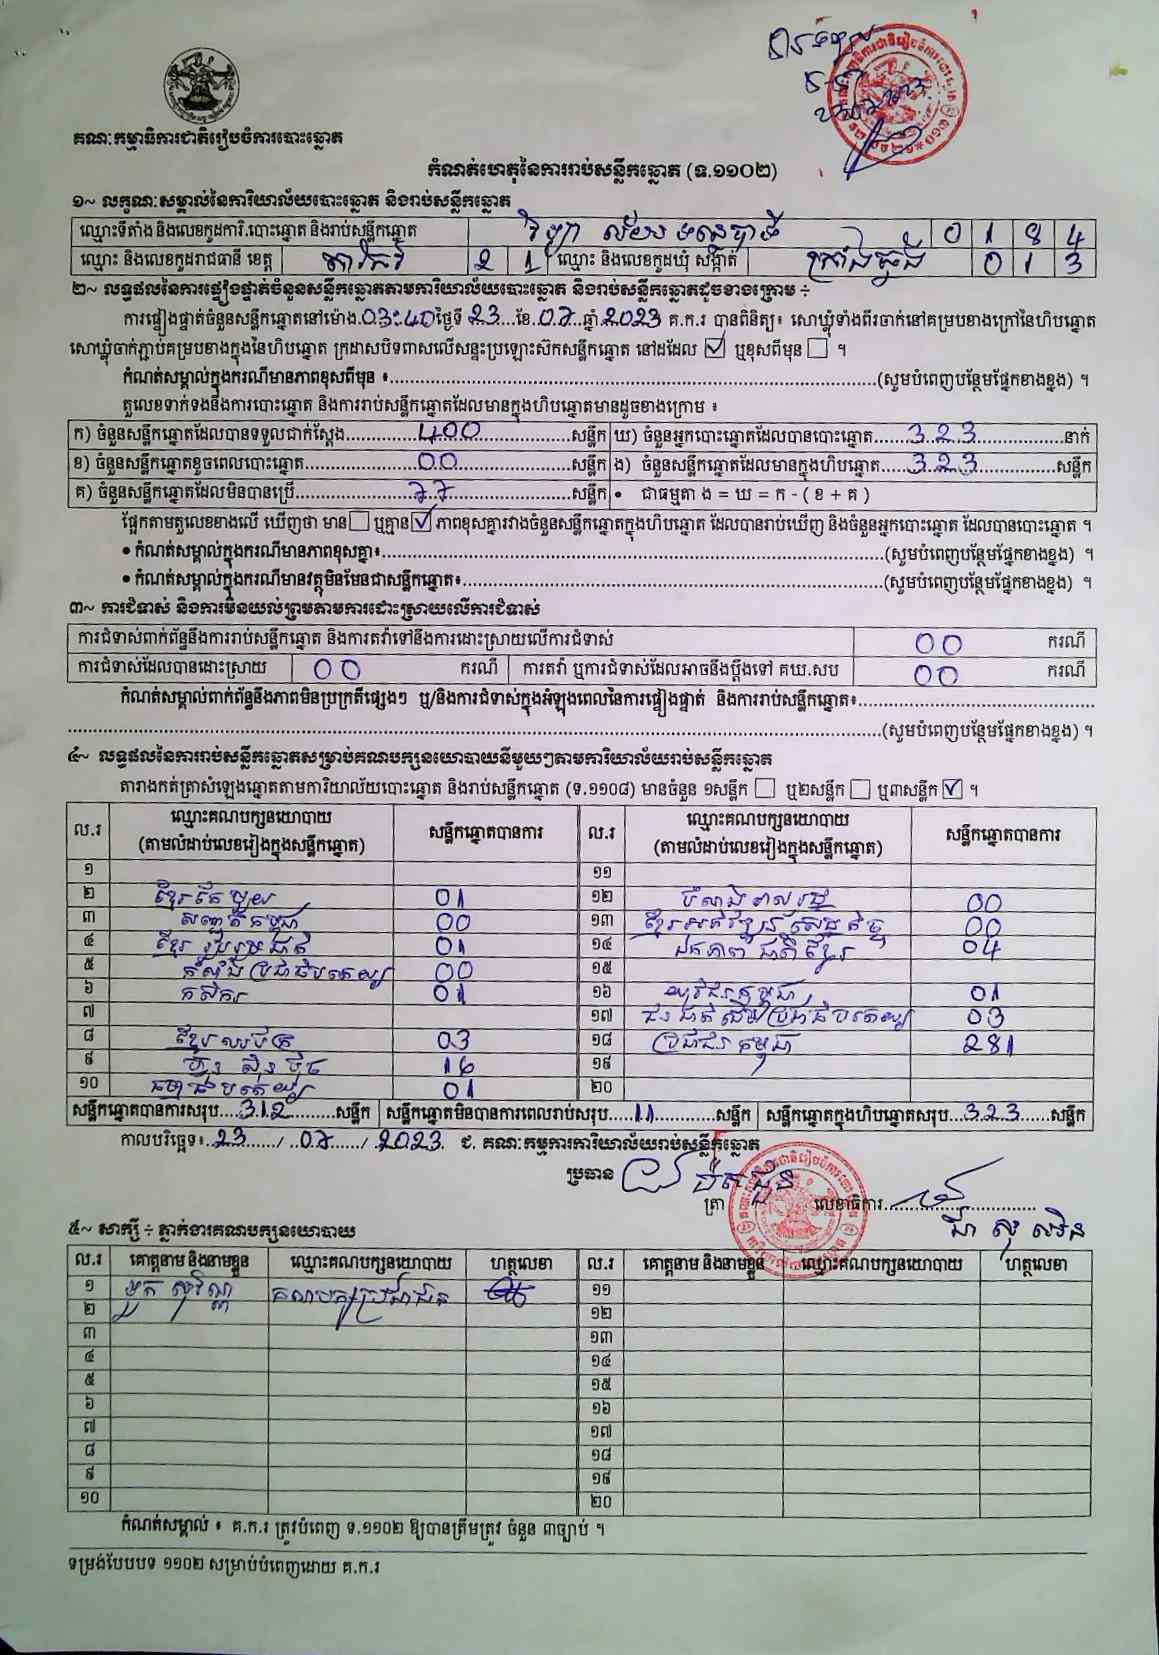 គណៈកម្មាធិការជាតិរៀបចំការបោះឆ្នោត
កំណត់ហេតុនៃការរាប់សន្លឹកឆ្នោត (ទ.១១០២)
១~ លក្ខណៈសម្គាល់នៃការិយាល័យបោះឆ្នោត និងរាប់សន្លឹកឆ្នោត
ឈ្មោះទីតាំង និងលេខកូដការិ.បោះឆ្នោត និងរាប់សន្លឹកឆ្នោត 0 1 8 4
ឈ្មោះ និងលេខកូដរាជធានី ខេត្ត តាកែវ 2 1 ឈ្មោះ និងលេខកូដឃុំ សង្កាត់ 0 1 3
២~ លទ្ធផលនៃការផ្ទៀងផ្ទាត់ចំនួនសន្លឹកឆ្នោតតាមការិយាល័យបោះឆ្នោត និងរាប់សន្លឹកឆ្នោតដូចខាងក្រោម ÷
ការផ្ទៀងផ្ទាត់ចំនួនសន្លឹកឆ្នោតនៅម៉ោង.03:40ថ្ងៃទី 23...ខែ.07..ឆ្នាំ 2023 គ.ក.រ បានពិនិត្យ៖ សោឃ្លុំទាំងពីរចាក់នៅគម្របខាងក្រៅនៃហិបឆ្នោត
សោឃ្លុំចាក់ភ្ជាប់គម្របខាងក្នុងនៃហិបឆ្នោត ក្រដាសបិទពាសលើសន្ទះប្រឡោះស៊កសន្លឹកឆ្នោត នៅដដែល ☑ ឬខុសពីមុន ☐ ។
កំណត់សម្គាល់ក្នុងករណីមានភាពខុសពីមុន ៖..........(សូមបំពេញបន្ថែមផ្នែកខាងខ្នង) ។
តួលេខទាក់ទងនឹងការបោះឆ្នោត និងការរាប់សន្លឹកឆ្នោតដែលមានក្នុងហិបឆ្នោតមានដូចខាងក្រោម ៖
ក) ចំនួនសន្លឹកឆ្នោតដែលបានទទួលជាក់ស្តែង.....400.....សន្លឹក ឃ) ចំនួនអ្នកបោះឆ្នោតដែលបានបោះឆ្នោត.....323.....នាក់
ខ) ចំនួនសន្លឹកឆ្នោតខូចពេលបោះឆ្នោត.....00.....សន្លឹក ង) ចំនួនសន្លឹកឆ្នោតដែលមានក្នុងហិបឆ្នោត.....323.....សន្លឹក
គ) ចំនួនសន្លឹកឆ្នោតដែលមិនបានប្រើ.....77.....សន្លឹក • ជាធម្មតា ង = ឃ = ក - ( ខ + គ )
ផ្អែកតាមតួលេខខាងលើ ឃើញថា មាន ☐ ឬគ្មាន ☑ ភាពខុសគ្នារវាងចំនួនសន្លឹកឆ្នោតក្នុងហិបឆ្នោត ដែលបានរាប់ឃើញ និងចំនួនអ្នកបោះឆ្នោត ដែលបានបោះឆ្នោត ។
• កំណត់សម្គាល់ក្នុងករណីមានភាពខុសគ្នា៖..........(សូមបំពេញបន្ថែមផ្នែកខាងខ្នង) ។
• កំណត់សម្គាល់ក្នុងករណីមានវត្ថុមិនមែនជាសន្លឹកឆ្នោត៖..........(សូមបំពេញបន្ថែមផ្នែកខាងខ្នង) ។
៣~ ការជំទាស់ និងការមិនយល់ព្រមតាមការដោះស្រាយលើការជំទាស់
ការជំទាស់ពាក់ព័ន្ធនឹងការរាប់សន្លឹកឆ្នោត និងការតវ៉ាទៅនឹងការដោះស្រាយលើការជំទាស់ 00 ករណី
ការជំទាស់ដែលបានដោះស្រាយ 00 ករណី ការតវ៉ា ឬការជំទាស់ដែលអាចនឹងប្តឹងទៅ គឃ.សប 00 ករណី
កំណត់សម្គាល់ពាក់ព័ន្ធនឹងភាពមិនប្រក្រតីផ្សេងៗ ឬ/និងការជំទាស់ក្នុងអំឡុងពេលនៃការផ្ទៀងផ្ទាត់ និងការរាប់សន្លឹកឆ្នោត៖..........
..........(សូមបំពេញបន្ថែមផ្នែកខាងខ្នង) ។
៤~ លទ្ធផលនៃការរាប់សន្លឹកឆ្នោតសម្រាប់គណបក្សនយោបាយនីមួយៗតាមការិយាល័យរាប់សន្លឹកឆ្នោត
តារាងកត់ត្រាសំឡេងឆ្នោតតាមការិយាល័យបោះឆ្នោត និងរាប់សន្លឹកឆ្នោត (ទ.១១០៨) មានចំនួន ១សន្លឹក ☐ ឬ២សន្លឹក ☐ ឬ៣សន្លឹក ☑ ។
ល.រ ឈ្មោះគណបក្សនយោបាយ (តាមលំដាប់លេខរៀងក្នុងសន្លឹកឆ្នោត) សន្លឹកឆ្នោតបានការ ល.រ ឈ្មោះគណបក្សនយោបាយ (តាមលំដាប់លេខរៀងក្នុងសន្លឹកឆ្នោត) សន្លឹកឆ្នោតបានការ
១ ១១
២ ខ្មែរតែមួយ 01 ១២ 00
៣ សញ្ជាតិកម្ពុជា 00 ១៣ ខ្មែរអភិវឌ្ឍន៍សេដ្ឋកិច្ច 00
៤ ខ្មែររួបរួមជាតិ 01 ១៤ ឯកភាពជាតិខ្មែរ 04
៥ កំលាំងប្រជាធិបតេយ្យ 00 ១៥
៦ កសិករ 01 ១៦ យុវជនកម្ពុជា 01
៧ ១៧ ជនជាតិដើមប្រជាធិបតេយ្យ 03
៨ ខ្មែរឈប់ក្រ 03 ១៨ ប្រជាជនកម្ពុជា 281
៩ ហ៊្វុនស៊ិនប៉ិច 16 ១៩
១០ ធម្មាធិបតេយ្យ 01 ២០
សន្លឹកឆ្នោតបានការសរុប....312....សន្លឹក សន្លឹកឆ្នោតមិនបានការពេលរាប់សរុប....11....សន្លឹក សន្លឹកឆ្នោតក្នុងហិបឆ្នោតសរុប...323...សន្លឹក
កាលបរិច្ឆេទ៖..23...../..07..../..2023. ជ. គណៈកម្មការការិយាល័យរាប់សន្លឹកឆ្នោត
ប្រធាន
ត្រា លេខាធិការ
៥~ សាក្សី ÷ ភ្នាក់ងារគណបក្សនយោបាយ
ល.រ គោត្តនាម និងនាមខ្លួន ឈ្មោះគណបក្សនយោបាយ ហត្ថលេខា ល.រ គោត្តនាម និងនាមខ្លួន ឈ្មោះគណបក្សនយោបាយ ហត្ថលេខា
១ គណបក្សប្រជាជន ១១
២ ១២
៣ ១៣
៤ ១៤
៥ ១៥
៦ ១៦
៧ ១៧
៨ ១៨
៩ ១៩
១០ ២០
កំណត់សម្គាល់ ៖ គ.ក.រ ត្រូវបំពេញ ទ.១១០២ ឱ្យបានត្រឹមត្រូវ ចំនួន ៣ច្បាប់ ។
ទម្រង់បែបបទ ១១០២ សម្រាប់បំពេញដោយ គ.ក.រ